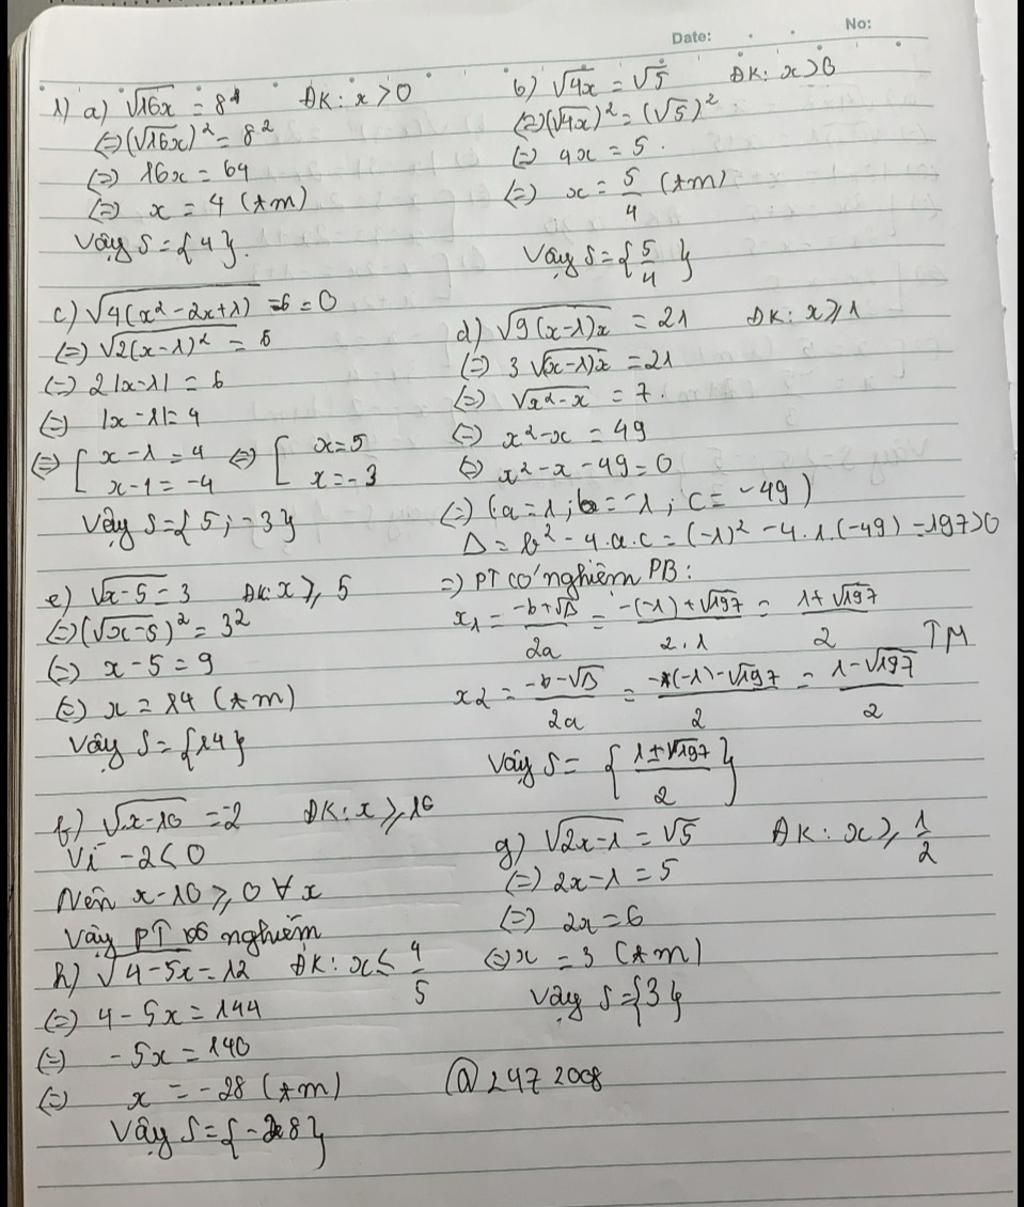 Date: No:
1) a) √16x = 8 ĐK: x > 0
⇔ (√16x)² = 8²
⇔ 16x = 64
⇔ x = 4 (tm)
Vậy S = {4}.
b) √4x = √5 ĐK: x > 0
⇔ (√4x)² = (√5)²
⇔ 4x = 5.
⇔ x = 5/4 (tm)
Vậy S = {5/4}
c) √4(x² - 2x + 1) - 6 = 0
⇔ √2(x - 1)² = 6
⇔ 2|x - 1| = 6
⇔ |x - 1| = 4
⇔ [ x - 1 = 4 ⇔ [ x = 5
x - 1 = -4 x = -3
Vậy S = {5; -3}
d) √9(x - 1)x = 21 ĐK: x ≥ 1
⇔ 3√(x - 1)x = 21
⇔ √x² - x = 7.
⇔ x² - x = 49
⇔ x² - x - 49 = 0
⇔ (a = 1; b = -1; c = -49)
Δ = b² - 4.a.c = (-1)² - 4.1.(-49) = 197 > 0
⇒ PT có nghiệm PB:
x1 = (-b + √Δ)/2a = (-(-1) + √197)/2.1 = (1 + √197)/2
TM
x2 = (-b - √Δ)/2a = (-(-1) - √197)/2 = (1 - √197)/2
Vậy S = {(1 ± √197)/2}
e) √x - 5 = 3 ĐK: x ≥ 5
⇔ (√x - 5)² = 3²
⇔ x - 5 = 9
⇔ x = 14 (tm)
Vậy S = {14}
f) √x - 10 = -2 ĐK: x ≥ 10
Vì -2 < 0
Nên x - 10 ≥ 0 ∀ x
Vậy PT vô nghiệm
g) √2x - 1 = √5 ĐK: x ≥ 1/2
⇔ 2x - 1 = 5
⇔ 2x = 6
⇔ x = 3 (tm)
Vậy S = {3}
h) √4 - 5x = 12 ĐK: x ≤ 4/5
⇔ 4 - 5x = 144
⇔ -5x = 140
⇔ x = -28 (tm)
Vậy S = {-28}
@2472008